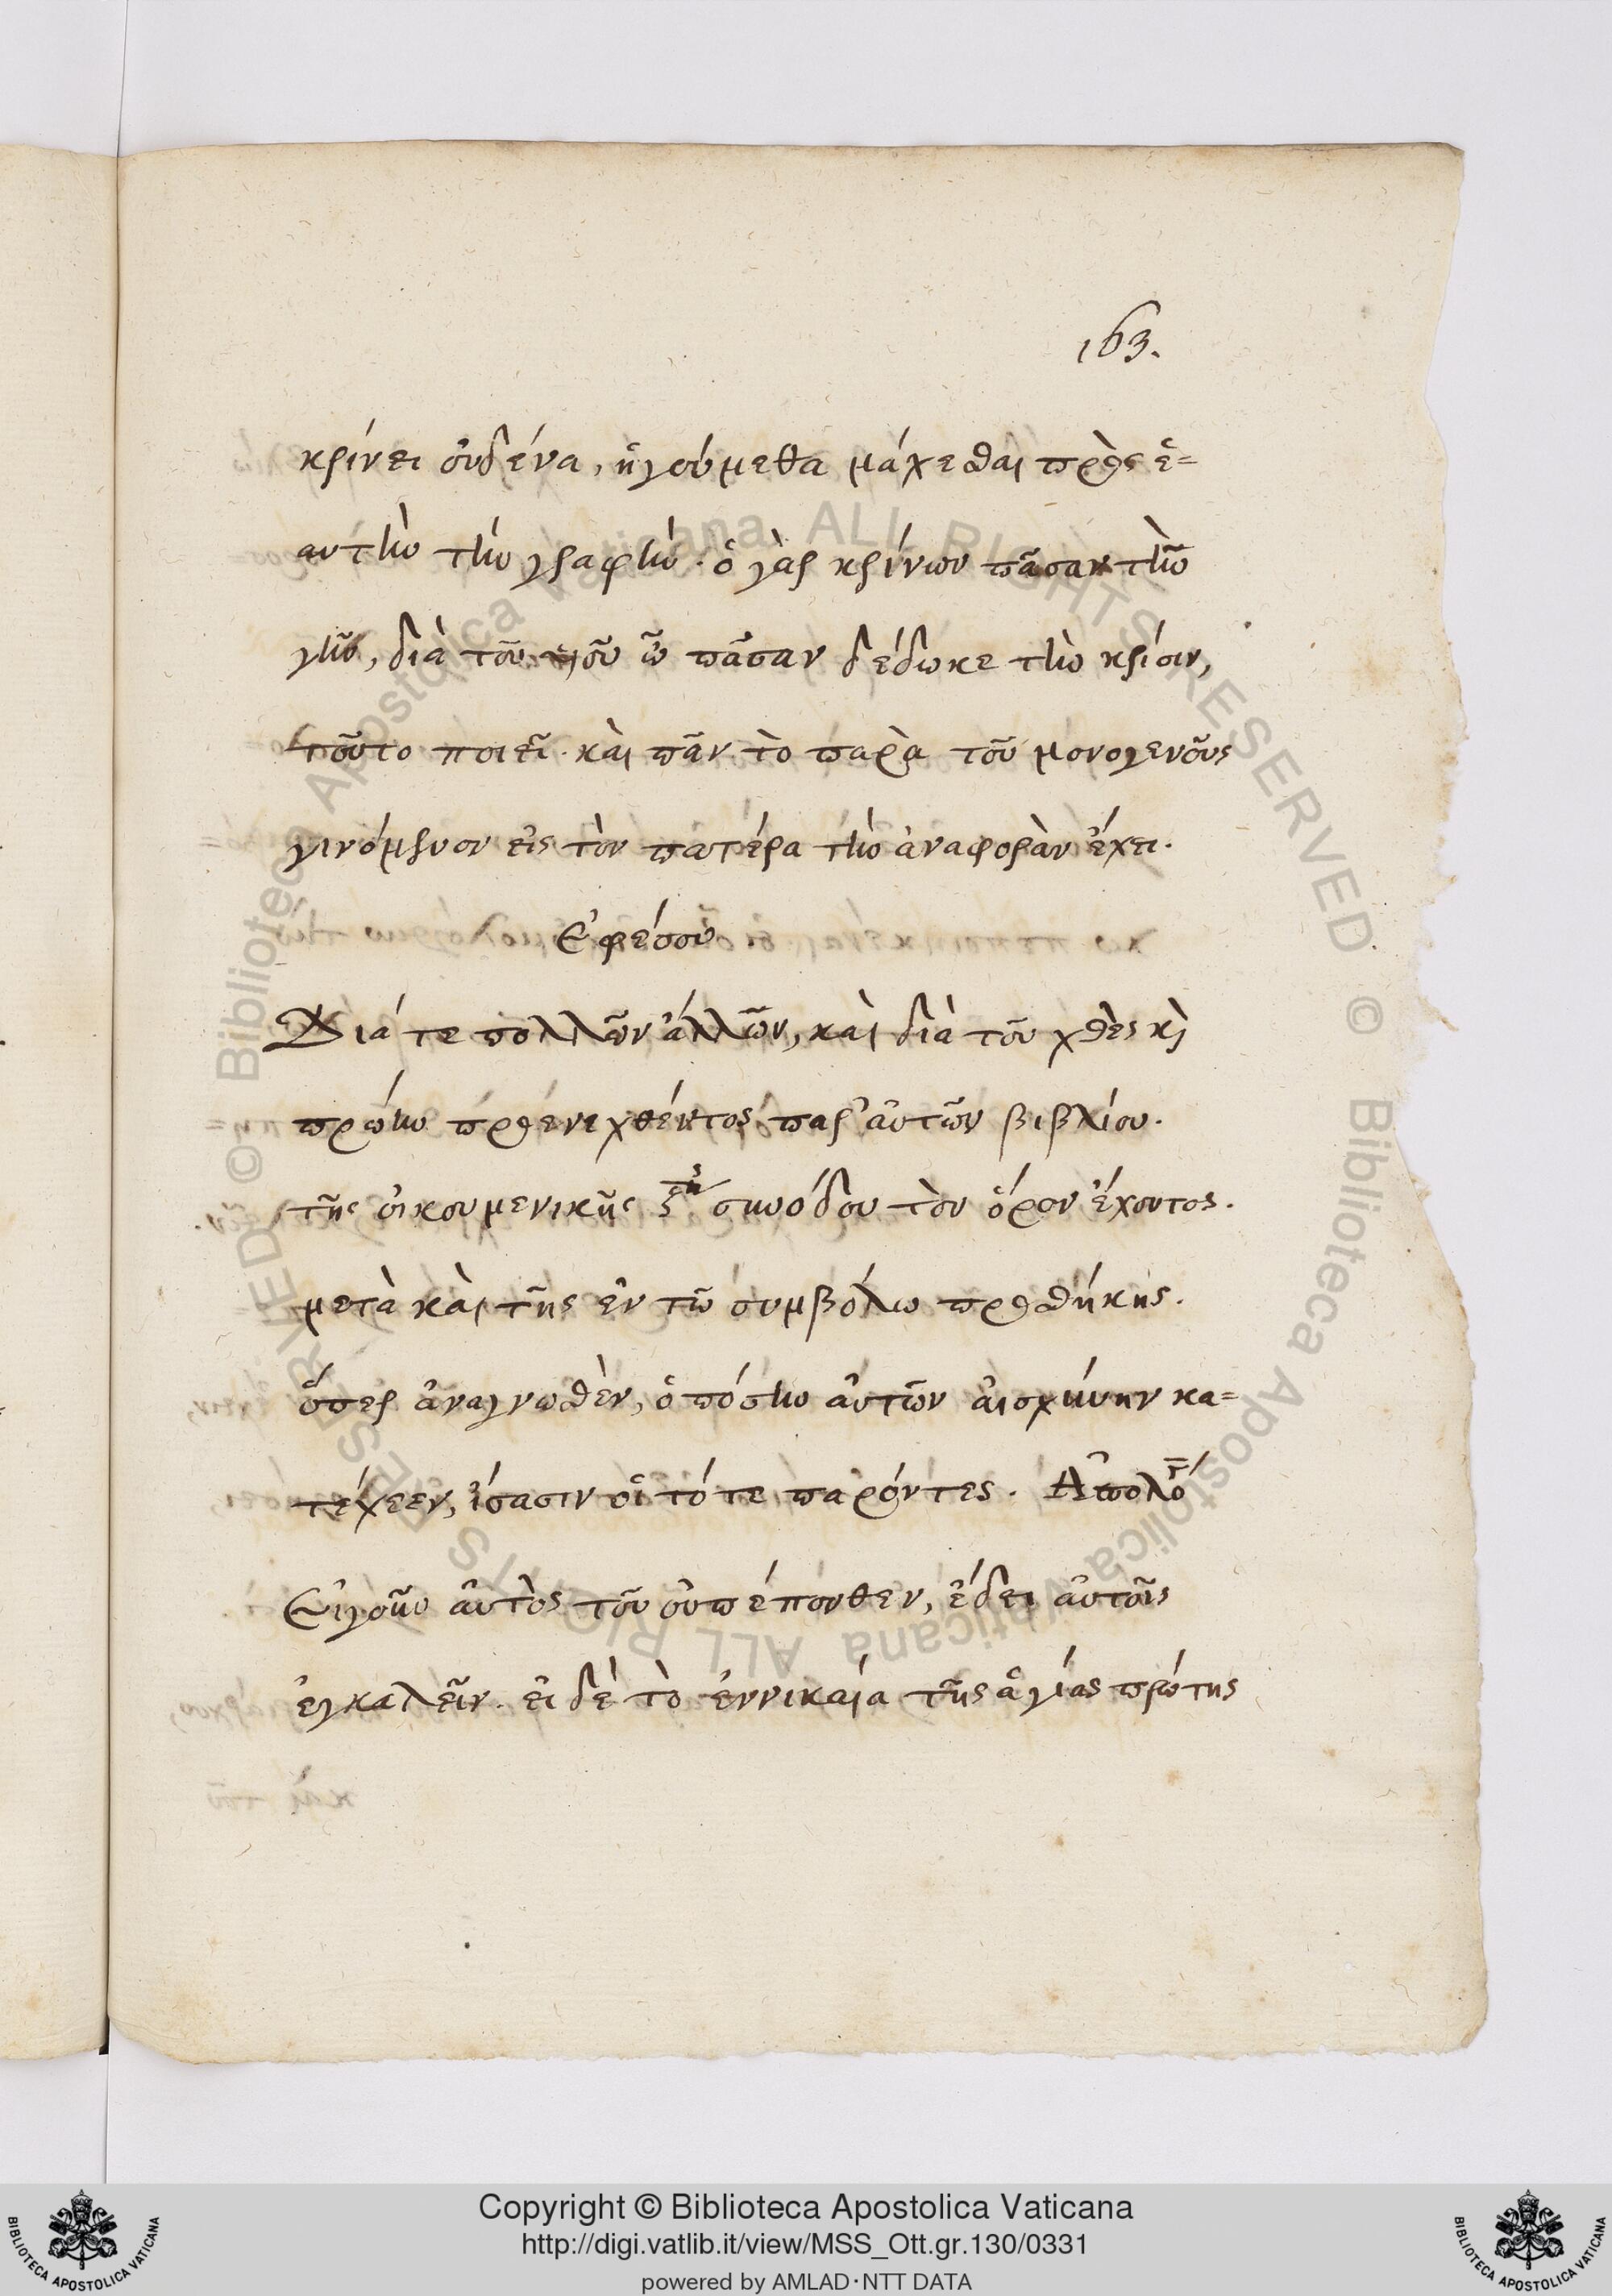 163.
κρίνει οὐδένα, ἡγούμεθα μάχεσθαι πρὸς ἑ=
αυτὴν τὴν γραφήν. ὁ γὰρ κρίνων πᾶσαν τὴν
γῆν, διὰ τοῦ υἱοῦ ὧ πᾶσαν δέδωκε τὴν κρίσιν,
τοῦτο ποιεῖ. καὶ πᾶν τὸ παρὰ τοῦ μονογενοῦς
γινόμενον εἰς τὸν πατέρα τὴν ἀναφορὰν ἔχει.
Ἐφέσου
Διά τε πολλῶν ἄλλων, καὶ διὰ τοῦ χθὲς κὶ
πρώην προσενεχθέντος παρ' αὐτῶν βιβλίου.
τῆς οἰκουμενικῆς ζης συνόδου τὸν ὅρον ἔχοντος.
μετὰ καὶ τῆς ἐν τῶ συμβόλω προσθήκης.
ὅπερ ἀναγνωσθὲν, ὁπόσην αὐτῶν αἰσχύνην κα=
τέχεεν, ἴσασιν οἱ τότε παρόντες. Ἀπολο
Εἰ γοῦν αὐτὸς τοῦ οὐπέπονθεν, ἔδει αὐτοῖς
ἐγκαλεῖν. εἰ δὲ τὸ ἐννικαία τῆς ἁγίας πρώτης
Copyright © Biblioteca Apostolica Vaticana
http://digi.vatlib.it/view/MSS_Ott.gr.130/0331
powered by AMLAD·NTT DATA
BIBLIOTECA APOSTOLICA VATICANA
BIBLIOTECA APOSTOLICA VATICANA
© Biblioteca Apostolica Vaticana ALL RIGHTS RESERVED
© Biblioteca Apostolica Vaticana ALL RIGHTS RESERVED